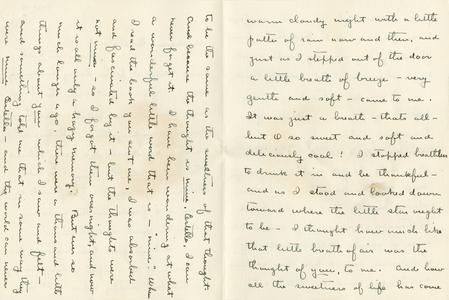 warm cloudy night with a little
patter of rain now and then, and
just as I stepped out of the door
a little breath of breeze - very
gentle and soft - came to me.
It was just a breath - thats all -
but O so sweet and soft and
deliciously cool! I stopped breathless
to drink it in and be thankful -
and as I stood and looked down
toward where the little star ought
to be - I thought how much like
that little breath of air was the
thought of you, to me. And how
all the sweetness of life has come
to be the same as the sweetness of that thought.
And because the thought is mine. Estelle, I can
never forget it. I have been wondering at what
a wonderful little word that is - "mine". When
I read the book you sent me, I was absorbed
and fascinated by it - but the thoughts were
not mine - so I forgot them over night, and now
it is all only a hazy memory. But even so
much longer ago there were a thousand little
things about you which I saw and felt -
and something told me that in some way they
were mine Estelle - and the world can never